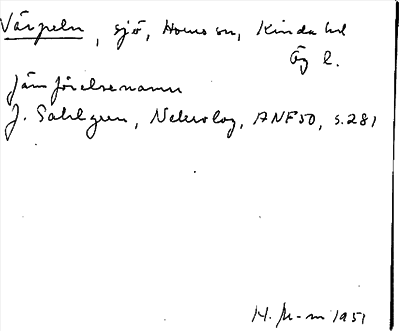 Värpeln, sjö, Horns sn, Kinda hd
Ög l.
Jämförelsenamn
J. Sahlgren, Nekrolog, ANF50, s.281
H. 1951